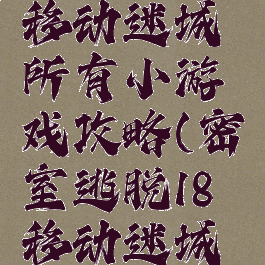 移动迷城
所有小游
戏攻略(密
室逃脱18
移动迷城